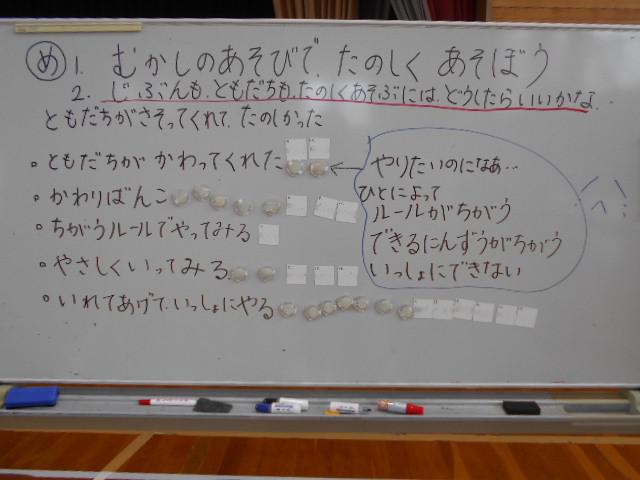 め 1. むかしのあそびで、たのしく あそぼう
2. じぶんも、ともだちも、たのしくあそぶには、どうしたらいいかな。
ともだちがさそってくれて、たのしかった
・ともだちが かわってくれた
・かわりばんこ
・ちがうルールでやってみる
・やさしくいってみる
・いれてあげて、いっしょにやる
やりたいのになぁ…
ひとによって
ルールがちがう
できるにんずうがちがう
いっしょにできない